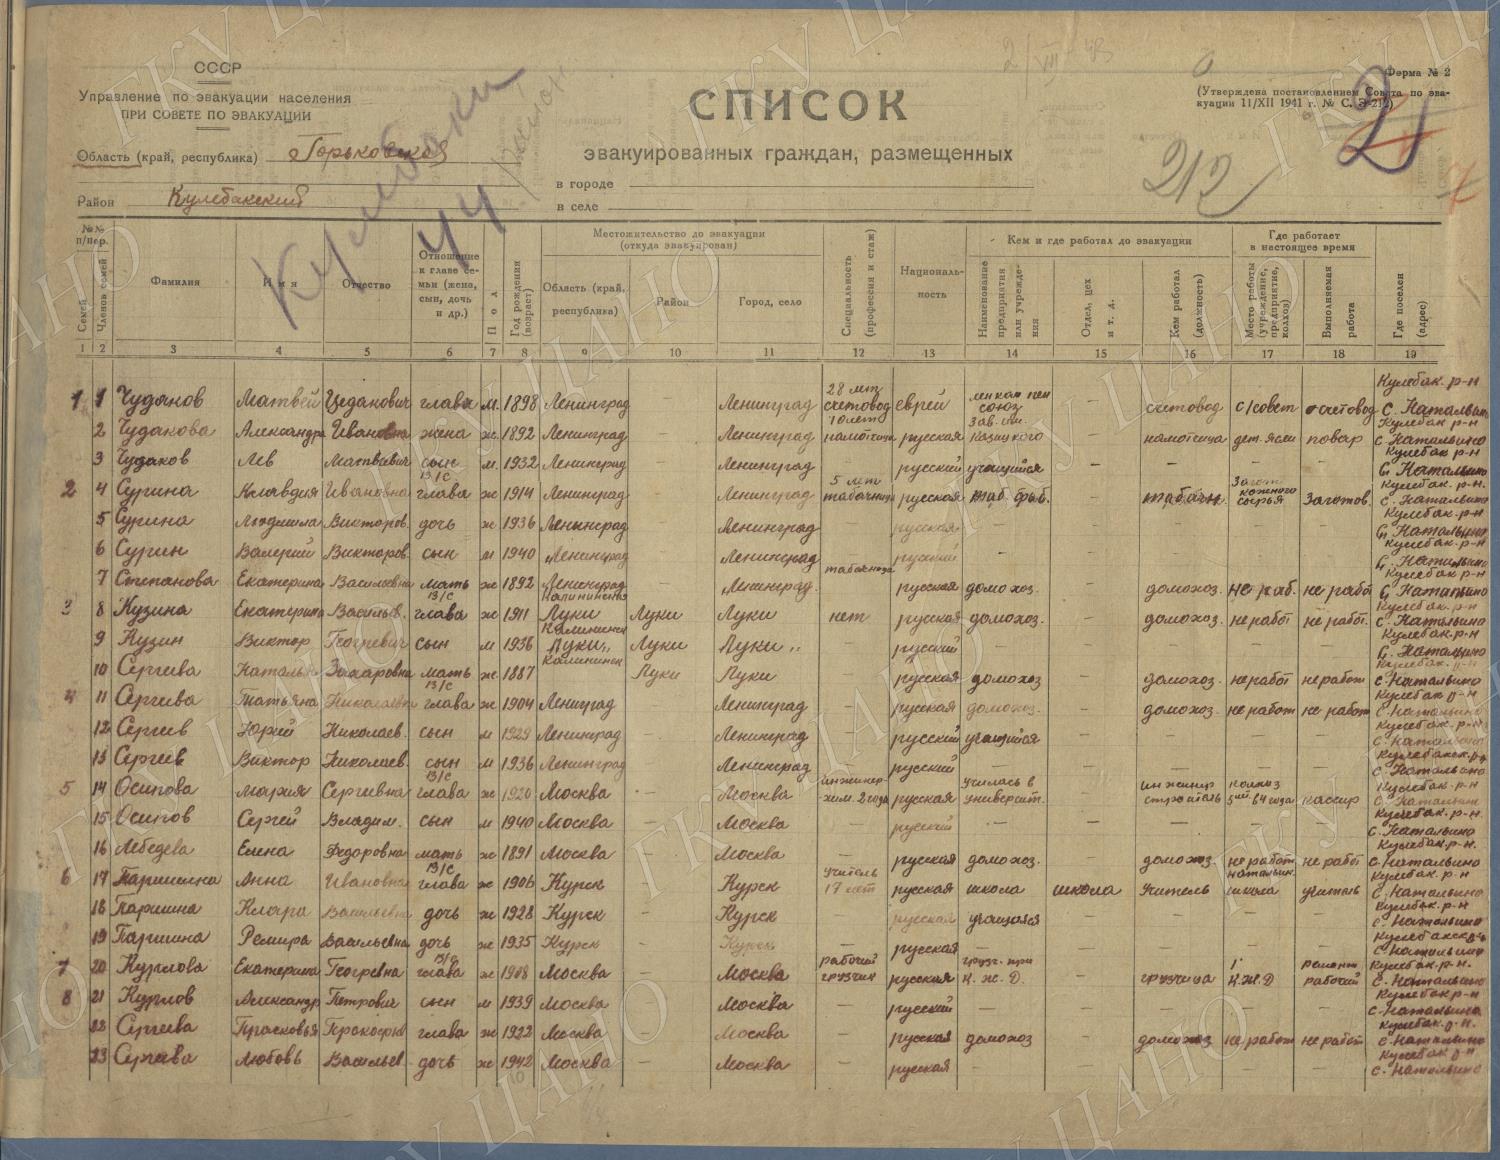 СССР
Управление по эвакуации населения
ПРИ СОВЕТЕ ПО ЭВАКУАЦИИ
Область (край, республика) Горьковская
Район Кулебакский
Кулебаки
44
СПИСОК
эвакуированных граждан, размещенных
в городе
в селе
Форма № 2
(Утверждена постановлением Совета по эва-
куации 11/XII 1941 г. № С. Э-212)
212
№№ п/пор.
Семей
Членов семей
Фамилия
Имя
Отчество
Отношение к главе се-мьи (жена, сын, дочь и др.)
Пол
Год рождения (возраст)
Местожительство до эвакуации (откуда эвакуирован)
Область (край, республика)
Район
Город, село
Специальность (профессия и стаж)
Националь-ность
Кем и где работал до эвакуации
Наименование предприятия или учрежде-ния
Отдел, цех и т. д.
Кем работал (должность)
Где работает в настоящее время
Место работы (учреждение, предприятие, колхоз)
Выполняемая работа
Где поселен (адрес)
1 2 3 4 5 6 7 8 9 10 11 12 13 14 15 16 17 18 19
1 1 Чудаков Матвей глава м. 1898 Ленинград — Ленинград 28 лет счетовод еврей союз — счетовод с/совет счетовод Кулебак. р-н С. Натальино
2 Чудакова Александра Ивановна жена ж 1892 Ленинград — Ленинград 10 лет русская — дет. ясли повар Кулебак р-н с Натальино
3 Чудаков Лев Матвеевич сын м. 1932 Ленинград — Ленинград русский учащийся — — — — Кулебак р-н С. Натальино
2 4 Сурина Клавдия Ивановна в/с глава ж 1914 Ленинград — Ленинград 5 лет табачница русская таб. фаб. — табачн. Загот. кожного сырья Заготов. Кулебак. р-н. с. Натальино
5 Сурина Людмила Викторов. дочь ж 1936 Ленинград — Ленинград русская — — — Кулебак. р-н С. Натальино
6 Сурин Валерий Викторов. сын м 1940 Ленинград — Ленинград русский — — — Кулебак. р-н С. Натальино
7 Степанова Екатерина Васильевна мать ж 1892 Ленинград — Ленинград. табачница русская домохоз. — домохоз. не раб. не рабо Кулебак. р-н С. Натальино
3 8 Кузина Екатерина Васильев. в/с глава ж 1911 Калининская Луки Луки Луки нет русская домохоз. — домохоз. не работ не работ. Кулебак. р-н с. Натальино
9 Кузин Виктор Георгевич сын м 1936 Калининск Луки „ Луки Луки „ русский — — — — Кулебак. р-н С. Натальино
10 Сергева Наталья Захаровна мать ж 1887 Калининск Луки Луки — русская домохоз — домохоз. не работ не работ Кулебак. р-н с. Натальино
4 11 Сергева Татьяна Николаевна в/с глава ж 1904 Ленинград — Ленинград — русская домохоз. — домохоз. не работ не работ Кулебак р-н с. Натальино
12 Сергеев Юрий Николаев. сын м 1929 Ленинград — Ленинград — русский учащийся — — — — Кулебак. р-н с. Натальино
13 Сергеев Виктор Николаев. сын м 1936 Ленинград — Ленинград русский — — — — Кулебакск. р-н с. Натальино
5 14 Осипова Мария Сергевна в/с глава ж 1920 Москва — Москва инженер- хим. 2 года русская училась в университ. — инженир строитель колхоз кассир Кулебак. р-н с. Натальин
15 Осипов Сергей Владим. сын м 1940 Москва — Москва русский — — — — Кулебак. р-н. с. Натальино
16 Лебедева Елена Федоровна мать ж 1891 Москва — Москва — русская домохоз. — домохоз. не работ не работ Кулебак. р-н. с. Натальино
6 17 Паршина Анна Ивановна в/с глава ж 1906 Курск — Курск учитель 17 лет русская школа школа учитель натальин. школа учитель Кулебак. р-н с. Натальино
18 Паршина Клара Васильевна дочь ж 1928 Курск — Курск русская учащаяся — — — — Кулебак. р-н с. Натальино
19 Паршина Ремира Васильевна дочь ж 1935 Курск — Курск — русская — — — — — Кулебакск р-н с. Натальино
7 20 Курлова Екатерина Георгевна в/с глава ж 1908 Москва — Москва рабочий грузчик русская К. Ж. Д. — грузчица К.Ж.Д ремонт рабочий Кулебак. р-н. с. Натальино
8 21 Курлов Александр Петрович сын м 1939 Москва — Москва — русский — — — — — Кулебак р-н с. Натальино
22 Сергева Прасковья Прокофьев глава ж 1922 Москва — Москва — русская домохоз — домохоз не работ не работ Кулебак. р-н. с. Натальино
23 Сергева Любовь Васильев дочь ж 1942 Москва — Москва русская — — — — Кулебак. р-н с. Натальино
ГКУ ЦАНО